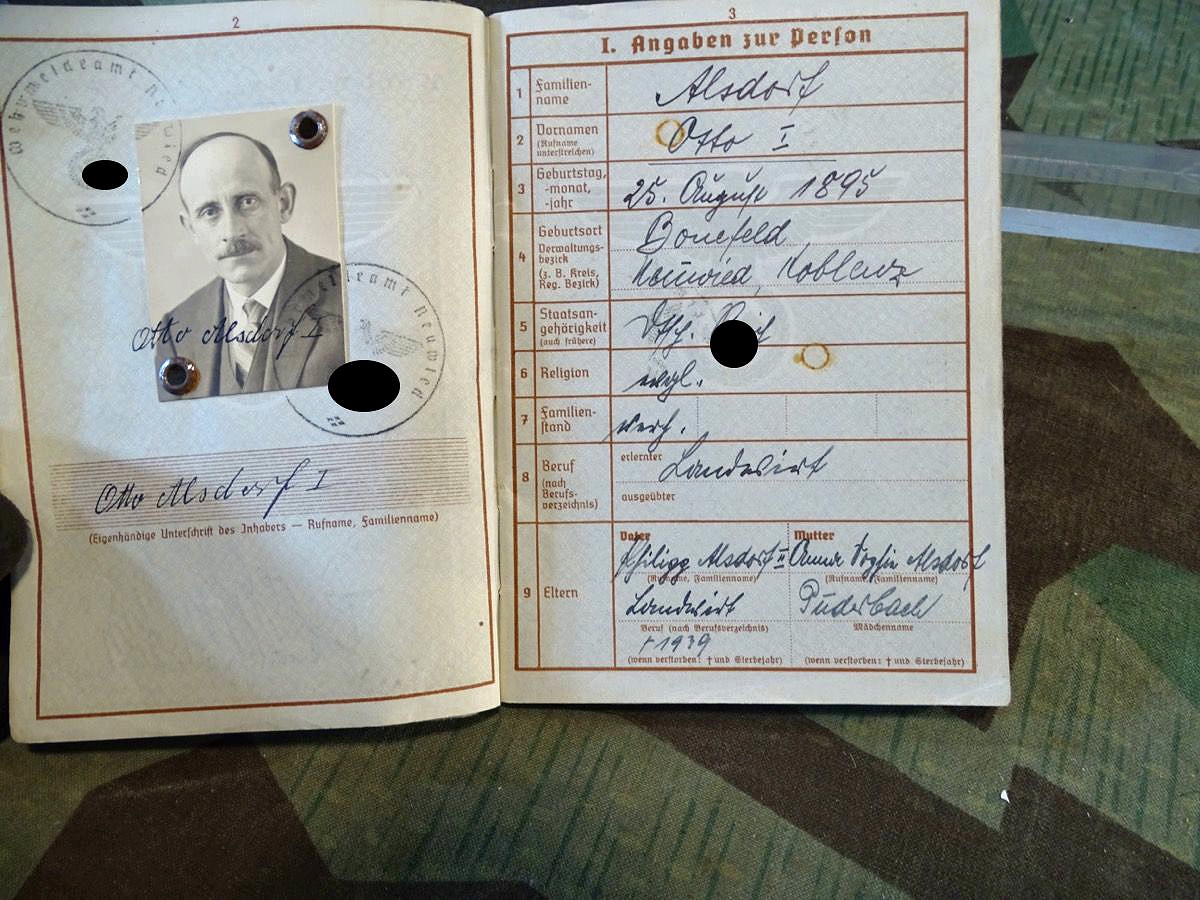 2
Wehrmeldeamt Neuwied
Otto Alsdorf I
Wehrmeldeamt Neuwied
Otto Alsdorf I
(Eigenhändige Unterschrift des Inhabers — Rufname, Familienname)
3
I. Angaben zur Person
1 Familien-
name
Alsdorf
2 Vornamen
(Rufname
unterstreichen)
Otto I
3 Geburtstag,
-monat,
-jahr
25. August 1895
4 Geburtsort
Verwaltungs-
bezirk
(z. B. Kreis,
Reg. Bezirk)
Bonefeld
Neuwied, Koblenz
5 Staatsan-
gehörigkeit
(auch frühere)
Dtsch.
6 Religion
evgl.
7 Familien-
stand
verh.
8 Beruf
(nach
Berufs-
verzeichnis)
erlernter Landwirt
ausgeübter
9 Eltern
Vater
Philipp Alsdorf II
(Rufname, Familienname)
Landwirt
Beruf (nach Berufsverzeichnis)
† 1939
(wenn verstorben: † und Sterbejahr)
Mutter
Anna Alsdorf
(Rufname, Familienname)
Puderbach
Mädchenname
(wenn verstorben: † und Sterbejahr)